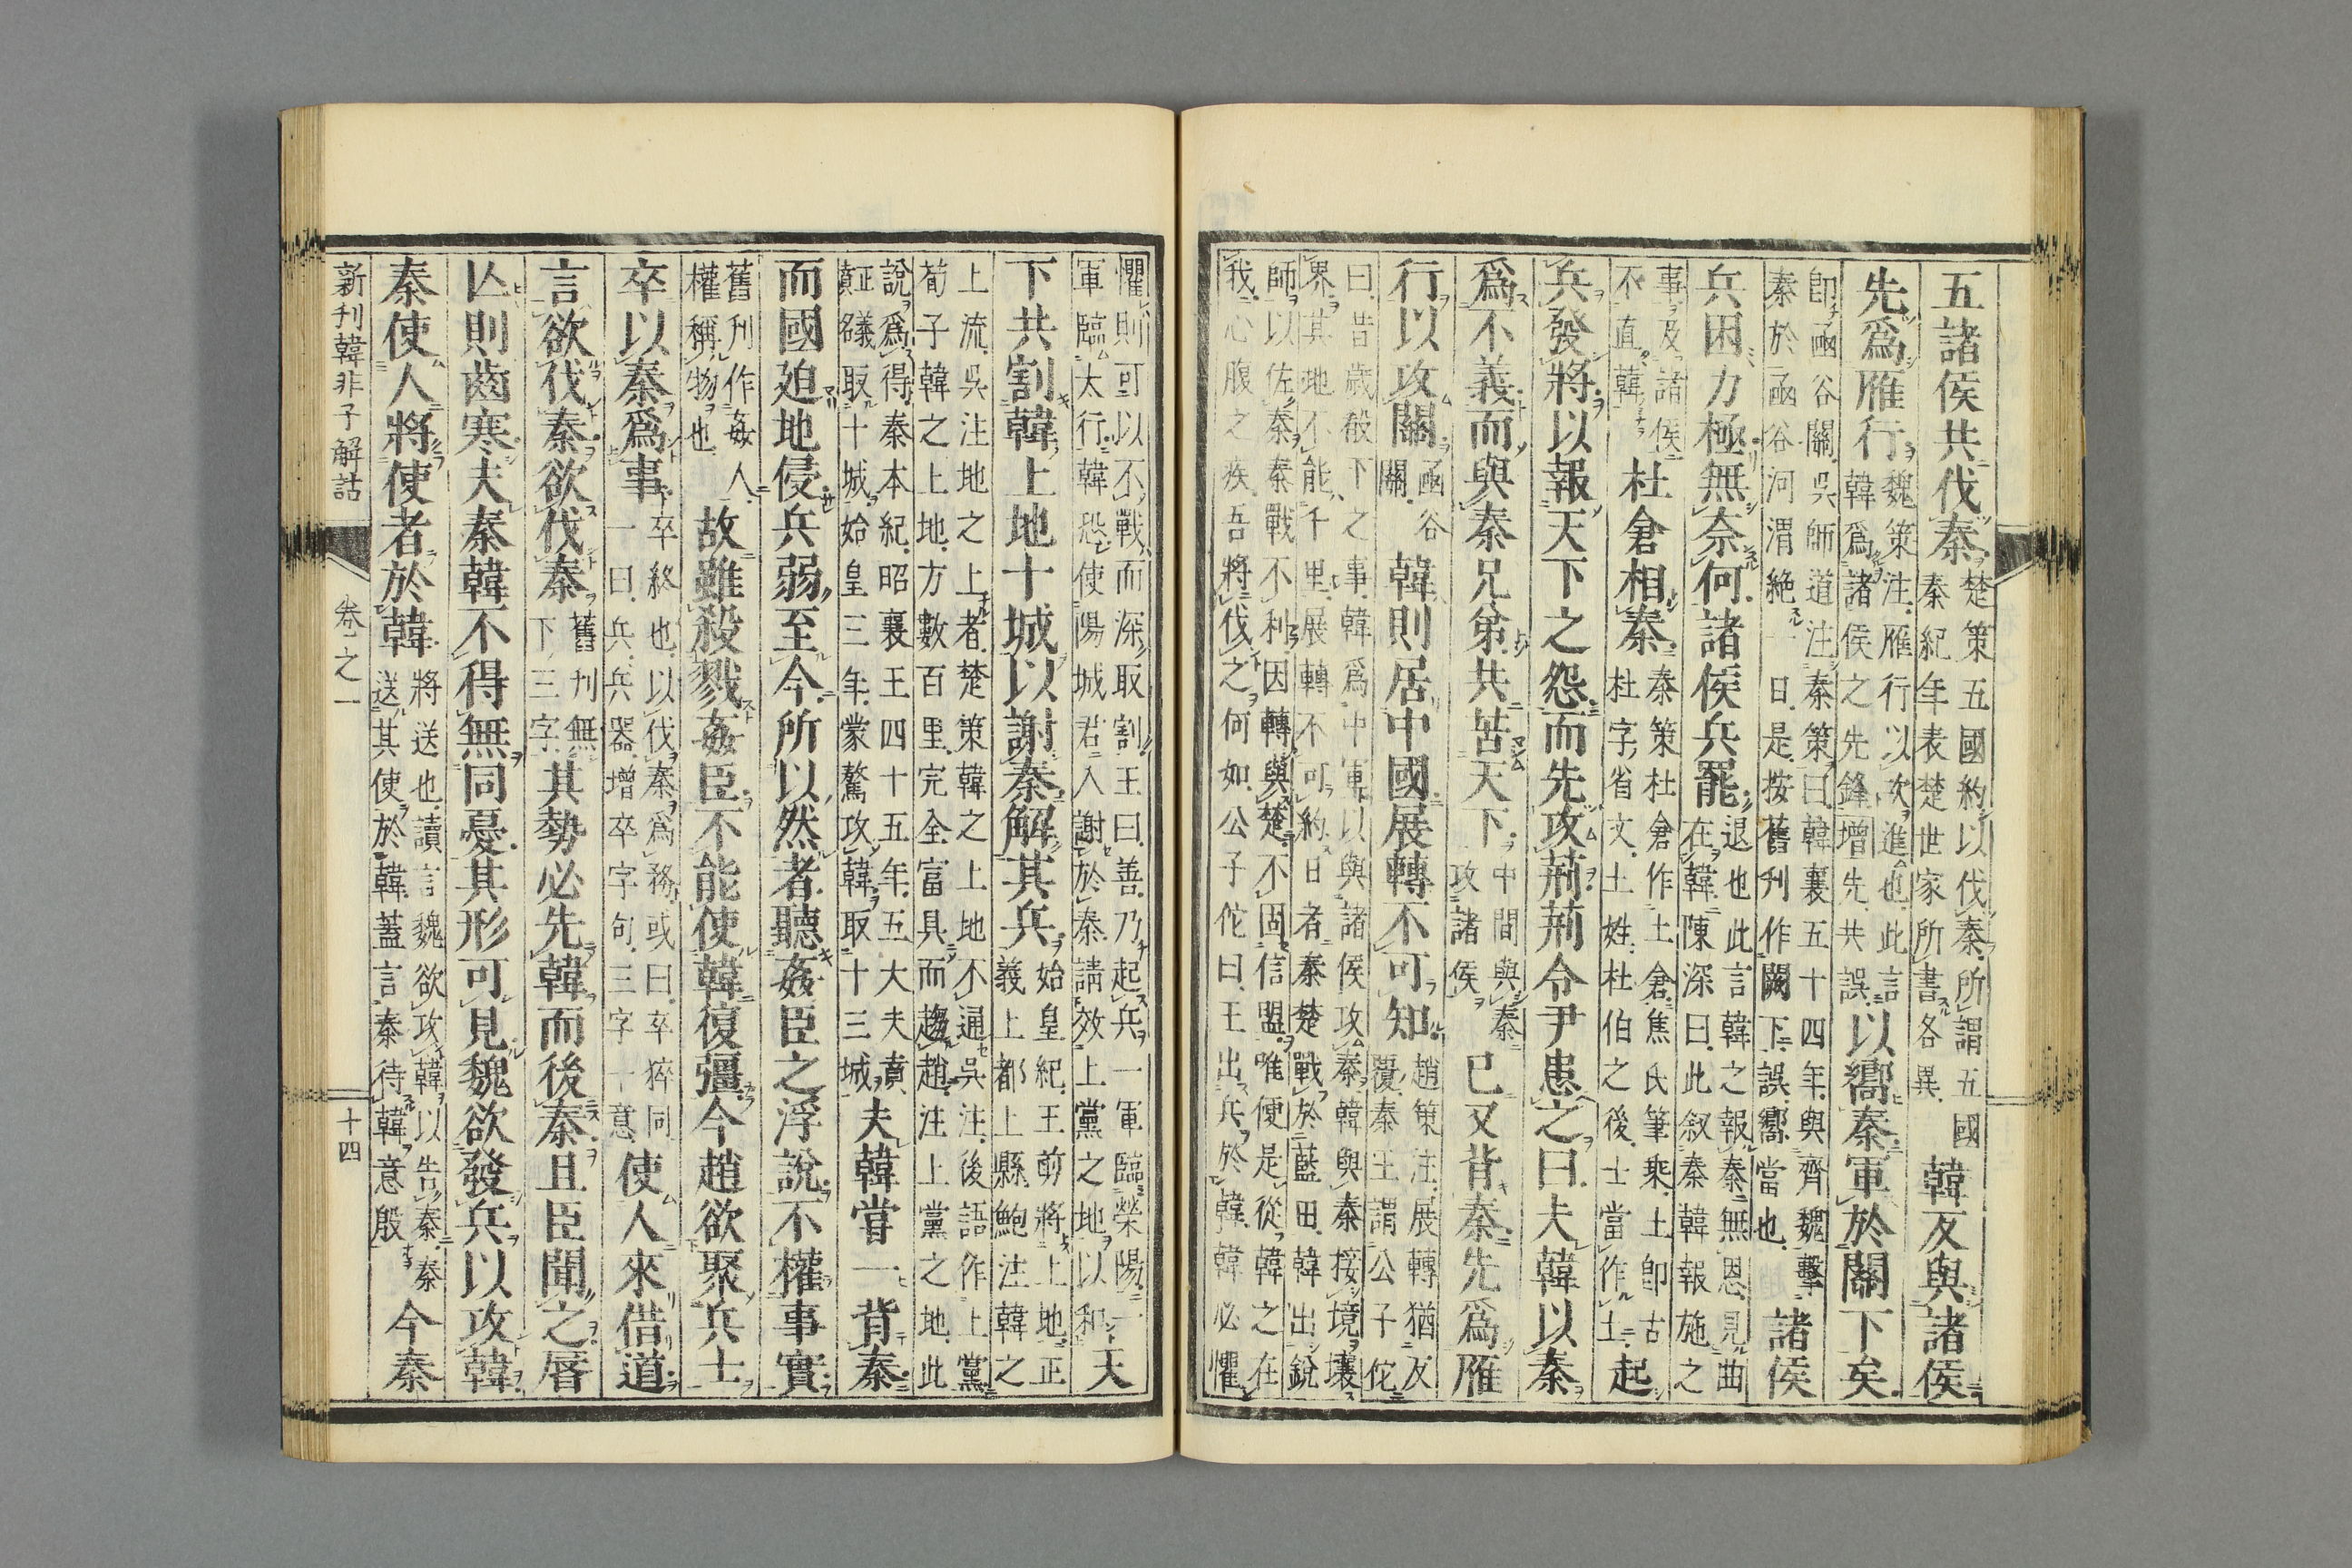 五諸侯共伐秦楚策五國約以伐秦所謂五國秦紀年表楚世家所書各異韓反與諸侯
先爲雁行魏策注雁行以次進也此言韓爲諸侯之先鋒增先共誤以嚮秦軍於關下矣
卽函谷關吳師道注秦策曰韓襄五十四年與齊魏擊秦於函谷河渭絶一日是按舊刋作闕下誤嚮當也諸侯
兵困力極無奈何諸侯兵罷退也此言韓之報秦無恩見曲在韓陳深曰此叙秦韓報施之
事及諸侯不直韓杜倉相秦秦策杜倉作土倉焦氏筆乘土卽古杜字省文土姓杜伯之後士當作土起
兵發將以報天下之怨而先攻荊荊令尹患之曰夫韓以秦
爲不義而與秦兄弟共苦天下中間與秦攻諸侯已又背秦先爲雁
行以攻關函谷關韓則居中國展轉不可知趙策注展轉猶反覆秦王謂公子佗
曰昔歲殽下之事韓爲中軍以與諸侯攻秦韓與秦接境壤界其地不能千里展轉不可約日者秦楚戰於藍田韓出銳
師以佐秦秦戰不利因轉與楚不固信盟唯便是從韓之在我心腹之疾吾將伐之何如公子佗曰王出兵於韓韓必懼
懼則可以不戰而深取割王曰善乃起兵一軍臨滎陽一軍臨太行韓恐使陽城君入謝於秦請效上黨之地以和天
下共割韓上地十城以謝秦解其兵始皇紀王剪將上地正義上都上縣鮑注韓之
上流吳注地之上者楚策韓之上地不通吳注後語作上黨荀子韓之上地方數百里完全富具而趨趙注上黨之地此
說爲得秦本紀昭襄王四十五年五大夫賁正義取十城始皇三年蒙驁攻韓取十三城夫韓嘗一背秦
而國廹地侵兵弱至今所以然者聽姦臣之浮說不權事實
舊刋作姦人權稱物也故雖殺戮姦臣不能使韓復彊今趙欲聚兵士
卒以秦爲事卒終也以伐秦爲務或曰卒猝同一曰兵兵器增卒字句三字一意使人來借道
言欲伐秦欲伐秦舊刋無下三字其勢必先韓而後秦且臣聞之唇
亾則齒寒夫秦韓不得無同憂其形可見魏欲發兵以攻韓
秦使人將使者於韓將送也讀言魏欲攻韓以告秦秦送其使於韓蓋言秦待韓意殷今秦
新刊韓非子解詁 卷之一 十四